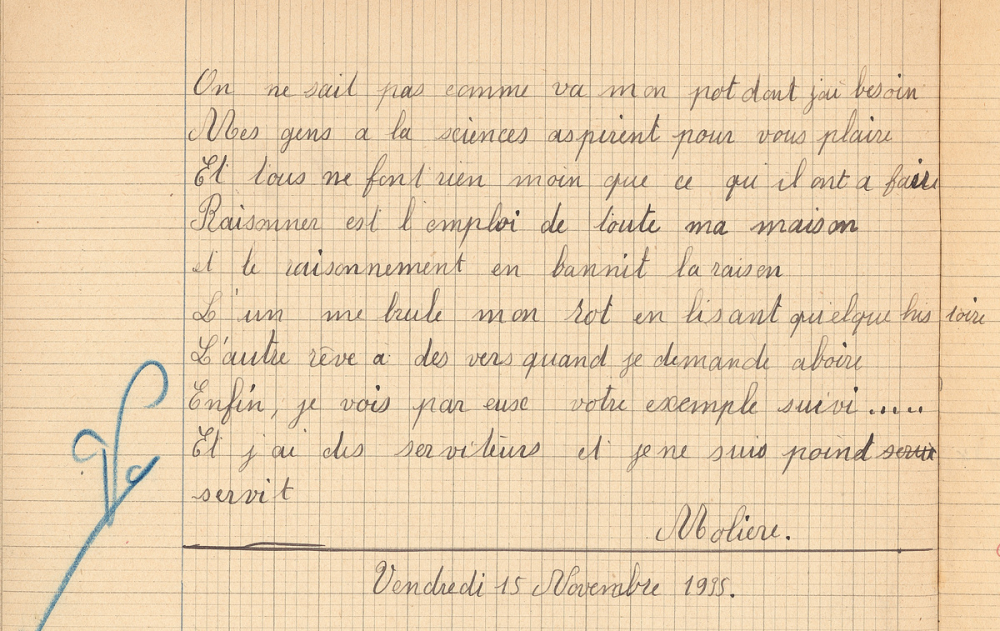 On ne sait pas comme va mon pot dont j'ai besoin
Mes gens a la sciences aspirent pour vous plaire
Et tous ne font rien moin que ce qu il ont a faire
Raisonner est l emploi de toute ma maison
et le raisonnement en bannit la raison
L'un me brule mon rot en lisant quielque his toire
L'autre rêve a des vers quand je demande aboire
Enfin, je vois par euse votre exemple suivi .....
Et j ai des serviteurs et je ne suis poind servit
servit
Moliere.
Vendredi 15 Novembre 1935.